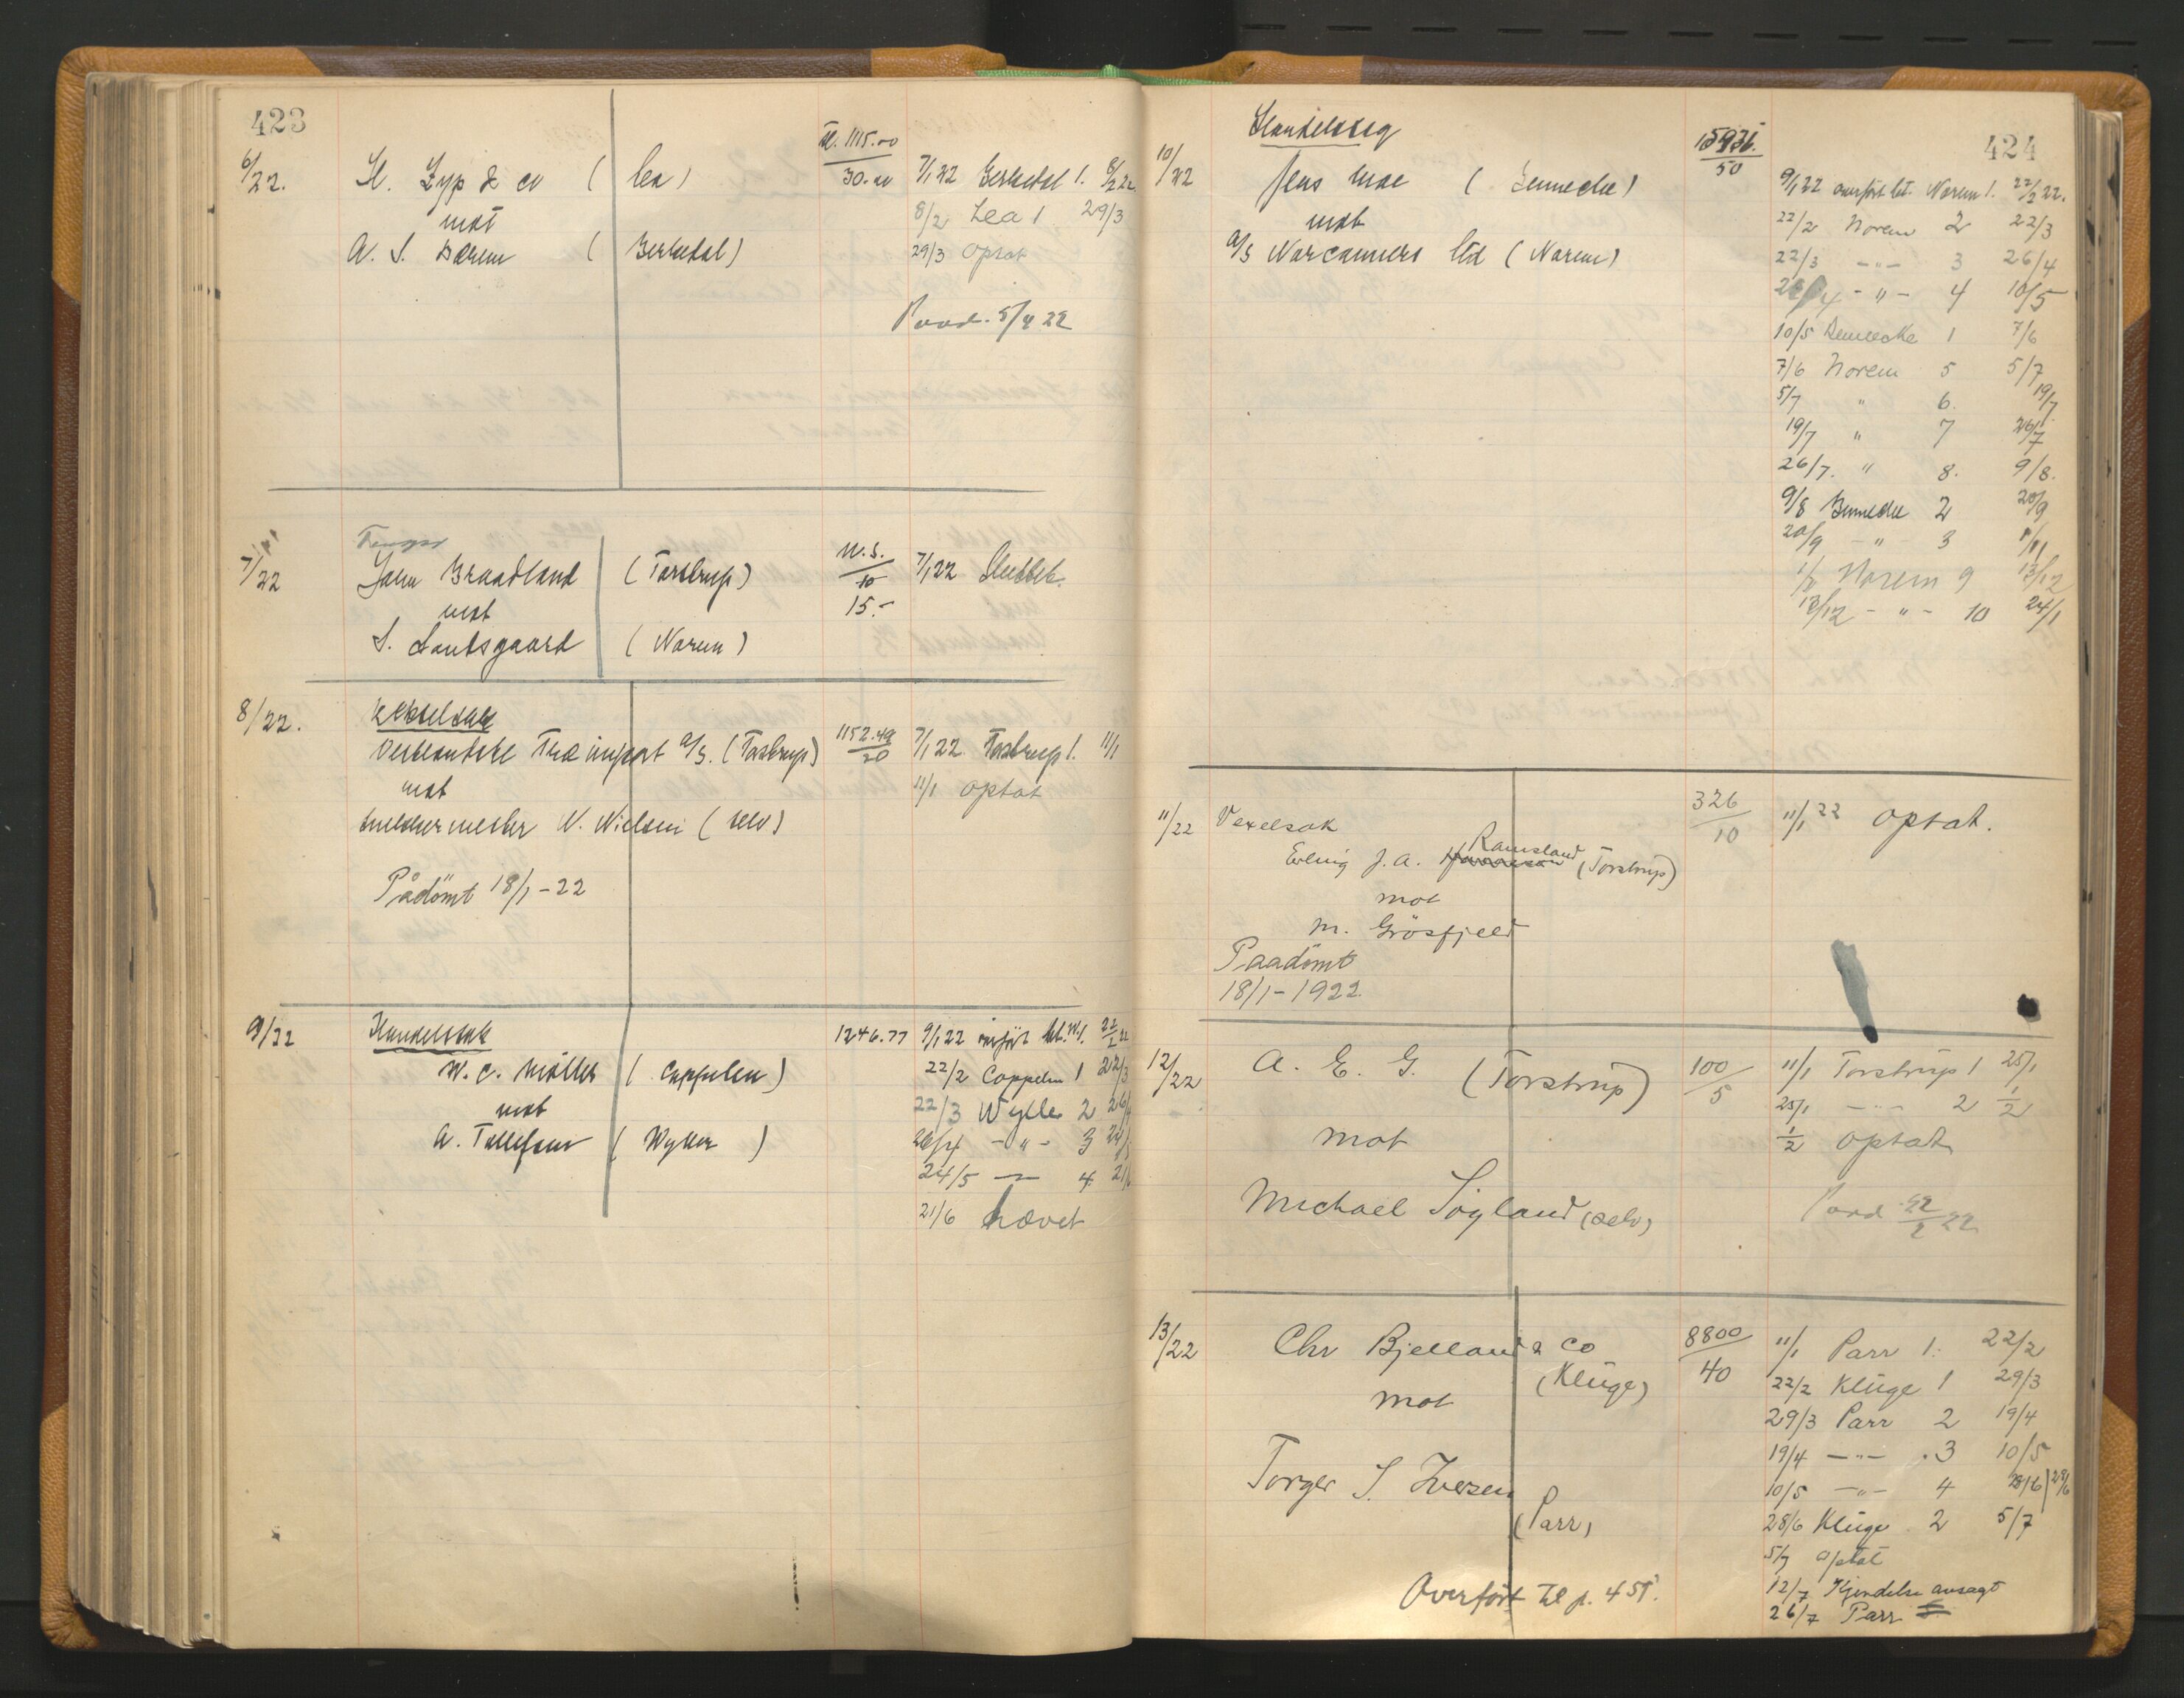 423
6/22. H. Zyp & co ( Lea )
Kr. 1115.00
30.00
7/1 22 Berkedal 1. 8/2 22
mot
8/2 Lea 1 29/3
A. S. Bærem ( Berkedal )
29/3 optat
Paad. 5/4 22
7/22 John Braadland (Torstrup)
N.S.
10
15.-
7/1 22 Sluttet.
mot
S. Lautsgaard ( Norem )
8/22. Vekselsak
Vestlandske Træimport A/S. (Torstrup)
1152.49
20
7/1 22 Torstrup 1. 11/1
mot
11/1 optat
Snekkermester N. Nielsen ( selv )
Pådömt 18/1-22
9/22 Handelssak
1246.77
9/1 22 22/2 22
W. C. Møller ( Cappelen )
22/2 Cappelen 1 22/3
mot
22/3 Wyller 2 26/4
A. Tollefsen ( Wyller )
26/4 -"- 3 24/5
24/5 -"- 4 21/6
21/6 hævet
424
10/22 Handelssag
50
Jens Moe ( Bennecke )
9/1 22 overført Norem 1. 22/2 22.
mot
22/2 Norem 2 22/3
A/S Norcanners Ltd ( Norem )
22/3 -"- 3 26/4
26/4 -"- 4 10/5
10/5 Bennecke 1 7/6
7/6 Norem 5 5/7
5/7 " 6. 19/7
19/7 " 7 26/7
26/7. " 8. 9/8.
9/8 Bennecke 2 20/9
20/9 -"- 3 1/11
1/11 Norem 9 13/12
13/12 -"- 10 24/1
11/22 Vexelsak
326
10
11/1 22 optat.
Erling J. A. Ramsland (Torstrup)
mot
M. Grösfjeld
Paadömt
18/1-1922
12/22 A. E. G. (Torstrup)
100
5
11/1 Torstrup 1 25/1
25/1 -"- 2 1/2
mot
1/2 optat
Michael Söyland (selv)
Paad 22/2 22
13/22 Chr Bjelland & Co
8800
40
11/1 Parr 1. 22/2
(Kluge)
22/2 Kluge 1 29/3
mot
29/3 Parr 2 19/4
19/4 -"- 3 10/5
Torger S. Iversen
10/5 -"- 4 28/6
(Parr)
28/6 Kluge 2 5/7
5/7 optat
12/7 Kjendelse avsagt
Overført til p. 451.
26/7 Parr 5